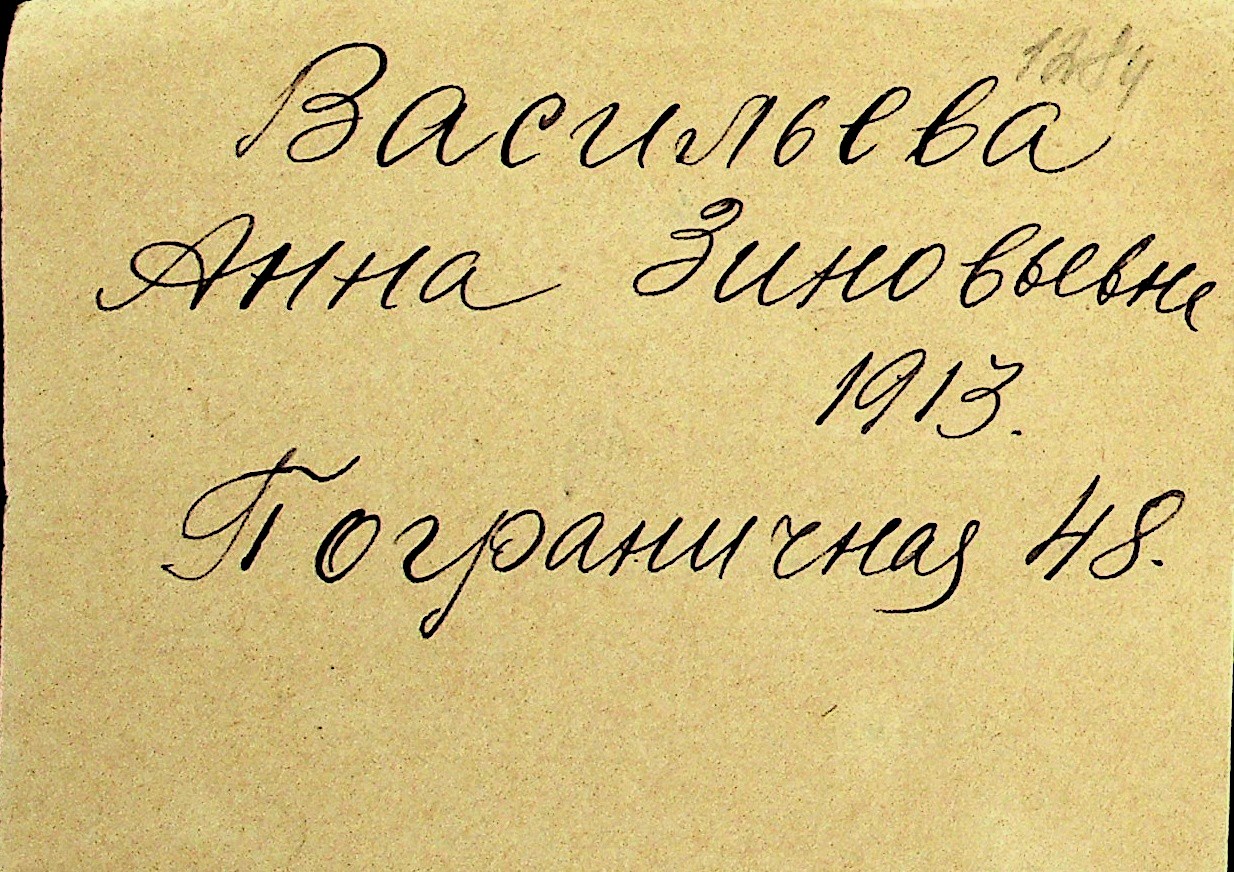 1284
Васильева
Анна Зиновьевна
1913.
Пограничная 48.